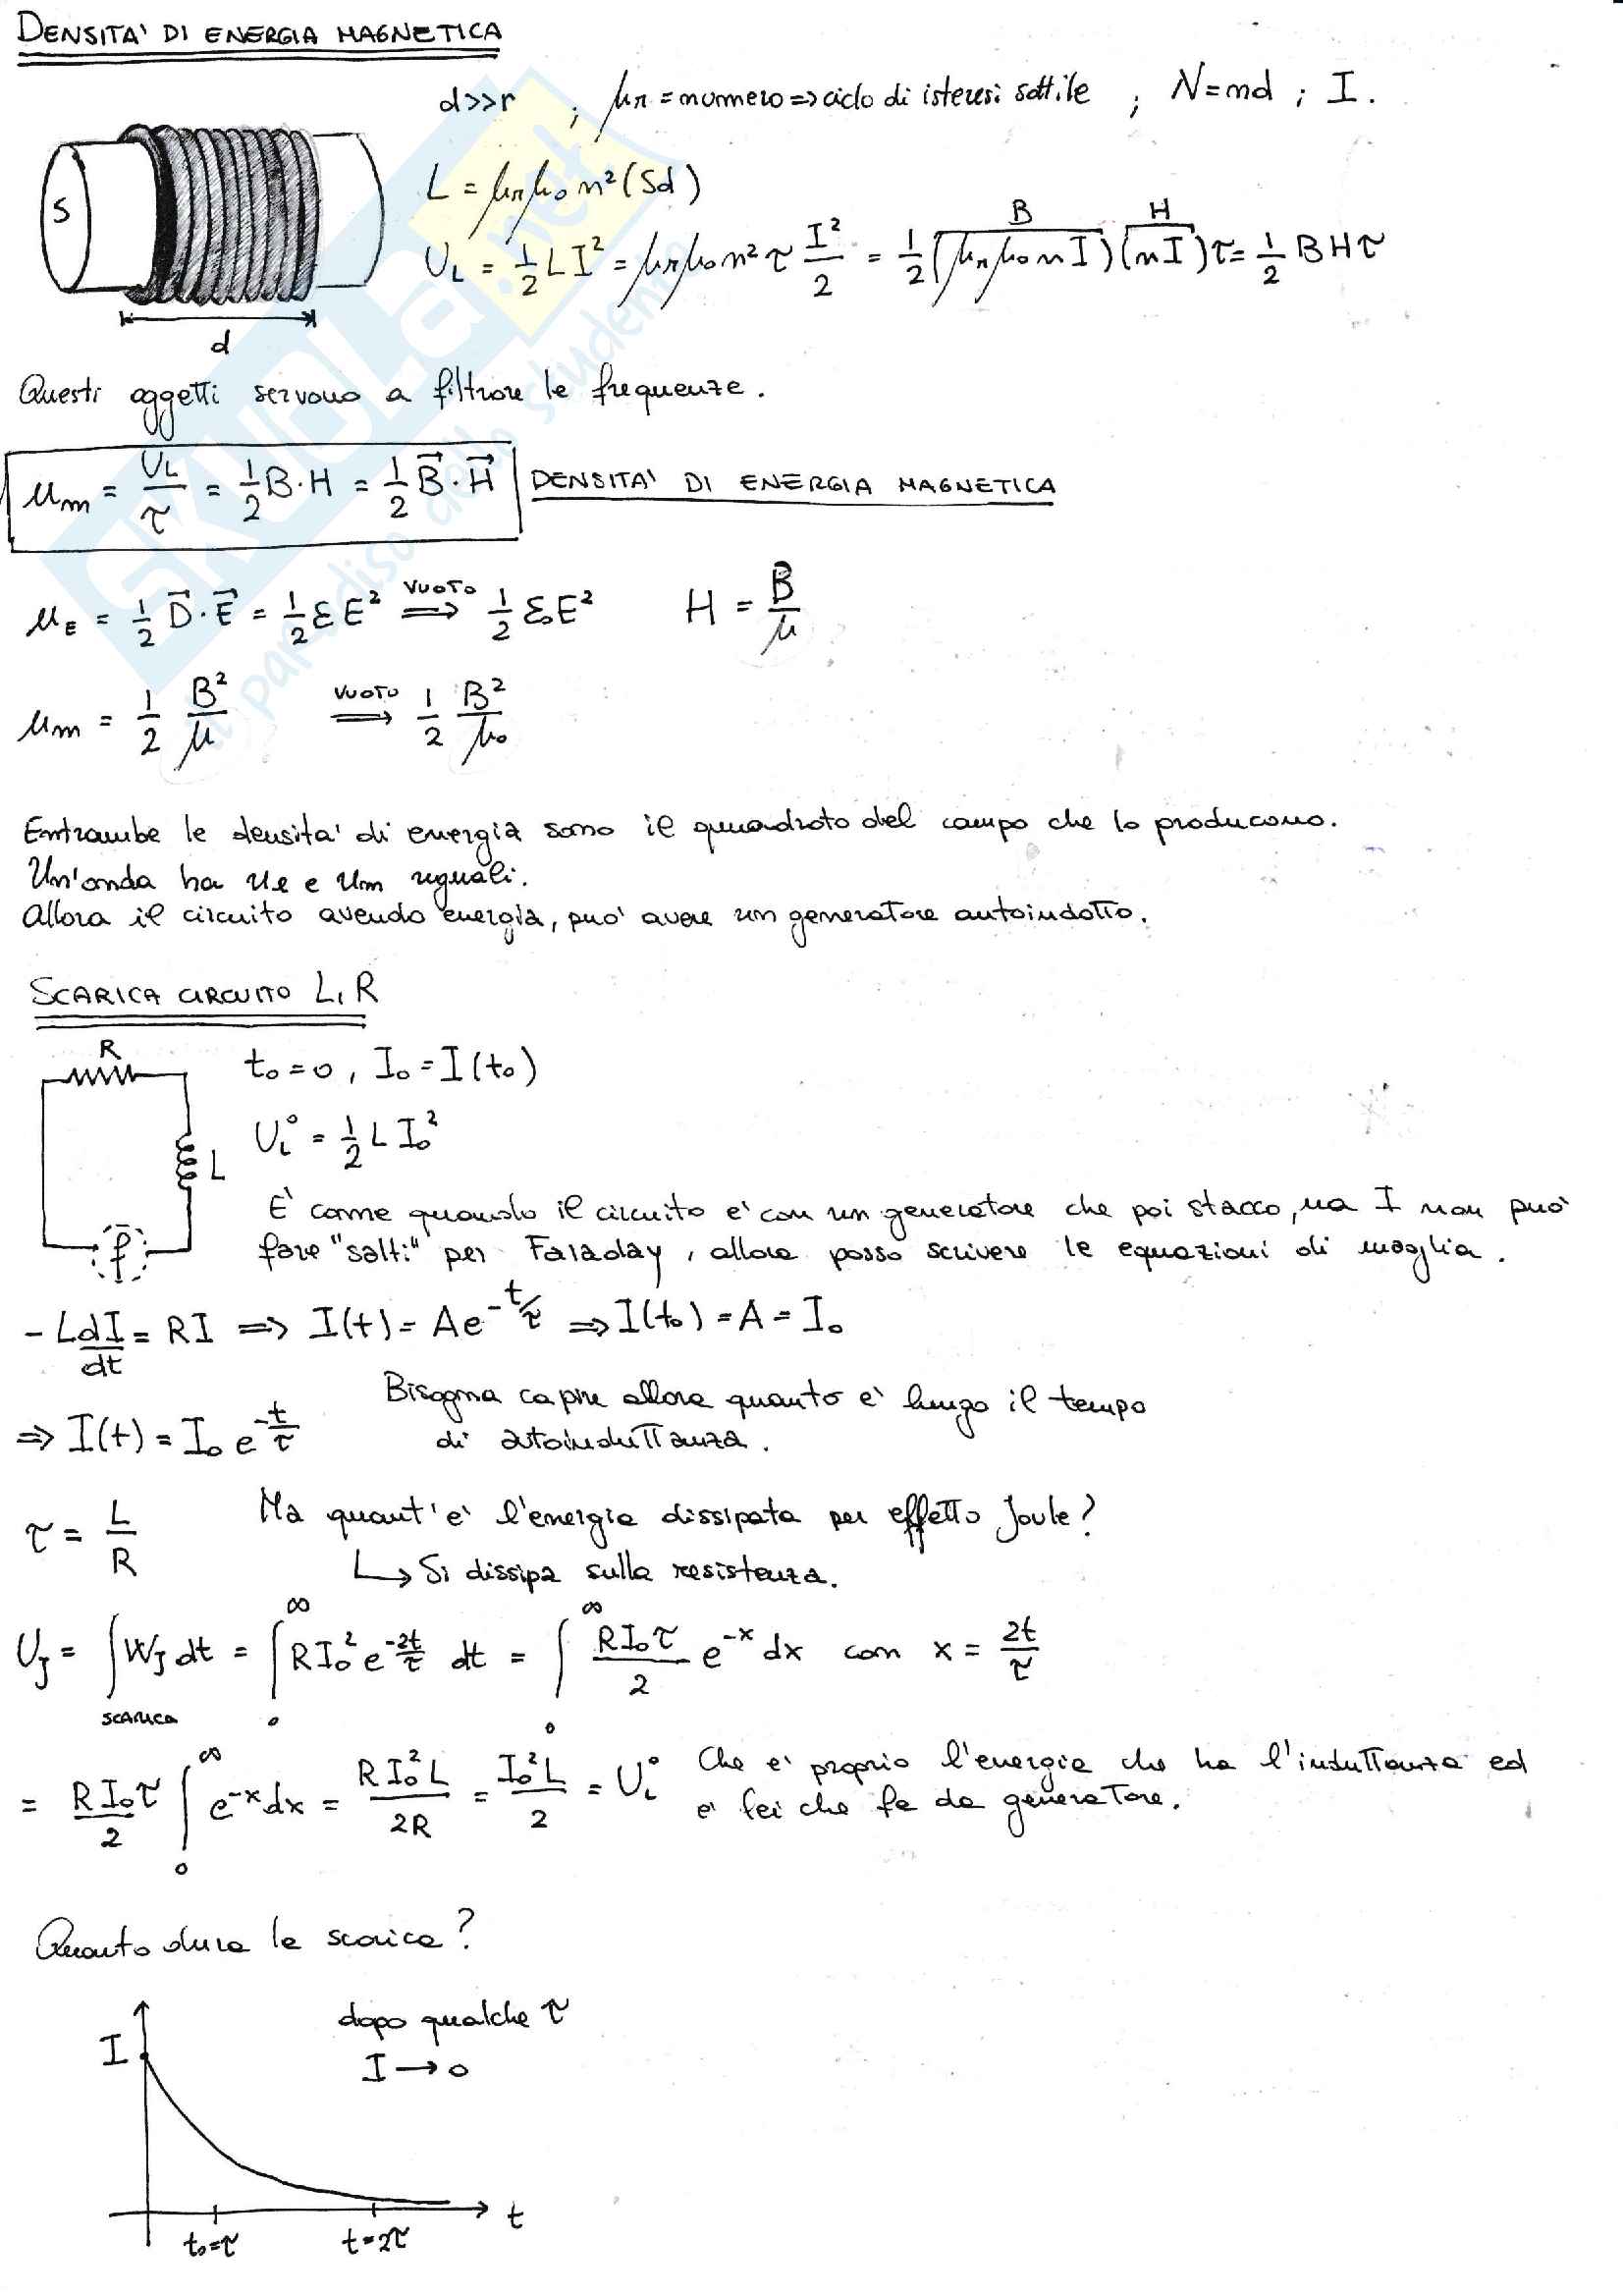 DENSITA' DI ENERGIA MAGNETICA
d>>r ; μr = numero => ciclo di isteresi sottile ; N=nd ; I.
S
L = μrμ₀n²(Sd)
U_L = 1/2 LI² = μrμ₀n²τ I²/2 = 1/2 (μrμ₀nI)(nI)τ = 1/2 BHτ
B H
d
Questi oggetti servono a filtrare le frequenze.
u_m = U_L/τ = 1/2 B·H = 1/2 B⃗·H⃗ DENSITA' DI ENERGIA MAGNETICA
u_E = 1/2 D⃗·E⃗ = 1/2 εE² VUOTO => 1/2 ε₀E² H = B/μ
u_m = 1/2 B²/μ VUOTO => 1/2 B²/μ₀
Entrambe le densita' di energia sono il quadrato del campo che lo producono.
Un'onda ha ue e um uguali.
Allora il circuito avendo energia, puo' avere un generatore autoindotto.
SCARICA CIRCUITO L, R
R
t₀=0, I₀=I(t₀)
U_L° = 1/2 L I₀²
L
f
E' come quando il circuito e' con un generatore che poi stacco, ma I non può
fare "salti" per Faraday, allora posso scrivere le equazioni di maglia.
-L dI/dt = RI => I(t) = Ae^(-t/τ) => I(t₀) = A = I₀
=> I(t) = I₀ e^(-t/τ) Bisogna capire allora quanto e' lungo il tempo
di autoinduttanza.
τ = L/R Ma quant'e' l'energia dissipata per effetto Joule?
↳ Si dissipa sulla resistenza.
U_J = ∫_SCARICA W_J dt = ∫₀^∞ RI₀² e^(-2t/τ) dt = ∫₀^∞ RI₀τ/2 e^(-x) dx con x = 2t/τ
= RI₀τ/2 ∫₀^∞ e^(-x) dx = RI₀²L/2R = I₀²L/2 = U_L° Che e' proprio l'energia che ha l'induttanza ed
e' lei che fa da generatore.
Quanto dura la scarica?
dopo qualche τ
I
I → 0
t
t₀=τ t=2τ
SKUOLA.net
il paradiso dello studente